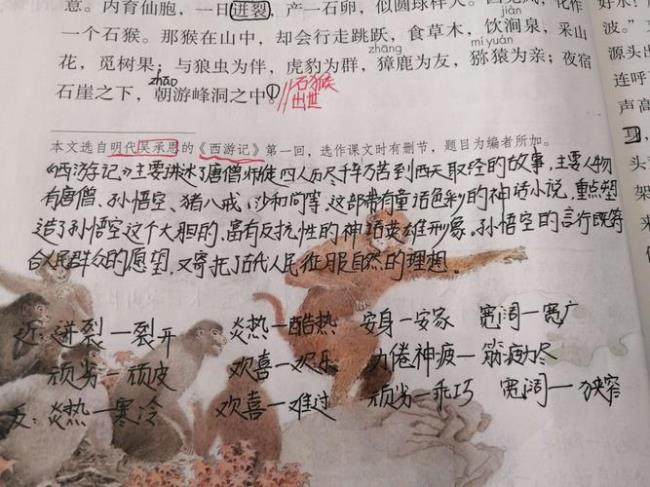 意。内育仙胞,一日迸裂,产一石卵,似圆球样大。
jiàn
一个石猴。那猴在山中,却会行走跳跃,食草木,饮涧泉,采山
zhāng
mí yuán
花,觅树果;与狼虫为伴,虎豹为群,獐鹿为友,猕猿为亲;夜宿
zhāo
石崖之下,朝游峰洞之中。
石猴
出世
本文选自明代吴承恩的《西游记》第一回,选作课文时有删节,题目为编者所加。
《西游记》主要讲述了唐僧师徒四人历尽千辛万苦到西天取经的故事,主要人物
有唐僧、孙悟空、猪八戒、沙和尚等,这部带有童话色彩的神话小说,重点塑
造了孙悟空这个大胆的,富有反抗性的神话英雄形象。孙悟空的言行既符
合人民群众的愿望,又寄托了古代人民征服自然的理想。
近:迸裂—裂开 炎热—酷热 安身—安家 宽阔—宽广
顽劣—顽皮 欢喜—欢乐 力倦神疲—筋疲力尽
反:炎热—寒冷 欢喜—难过 顽劣—乖巧 宽阔—狭窄
好水!
波。”
源头出
连呼
声高
头
架
来